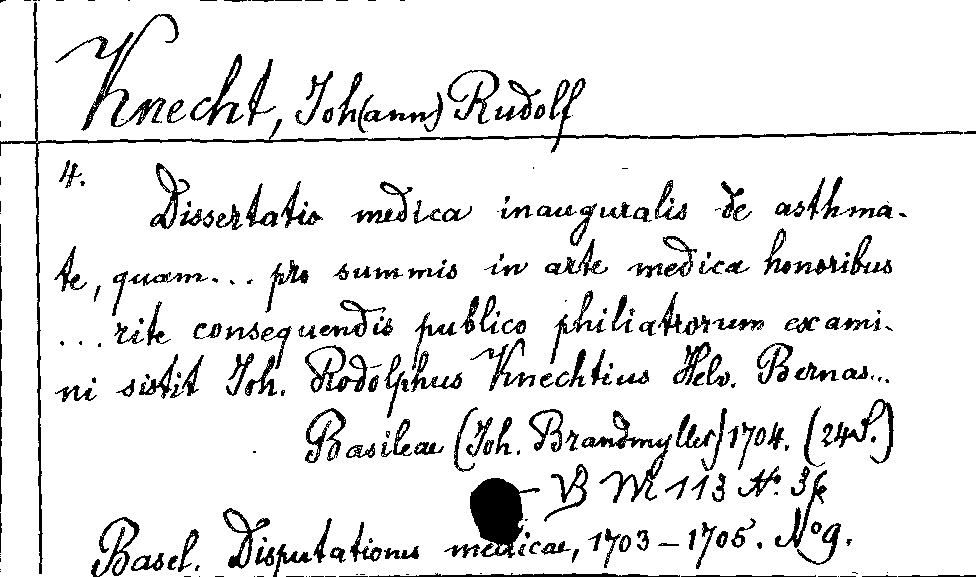 Knecht, Joh(ann) Rudolf
4.
Dissertatio medica inauguralis de asthma-
te, quam... pro summis in arte medica honoribus
...rite consequendis publico philiatrorum exami-
ni sistit Joh. Rodolphus Knechtius Helv. Bernas...
Basileae (Joh. Brandmyller) 1704. (24 S.)
– VB M 113 No.
Basel. Disputationes medicae, 1703–1705. No 9.